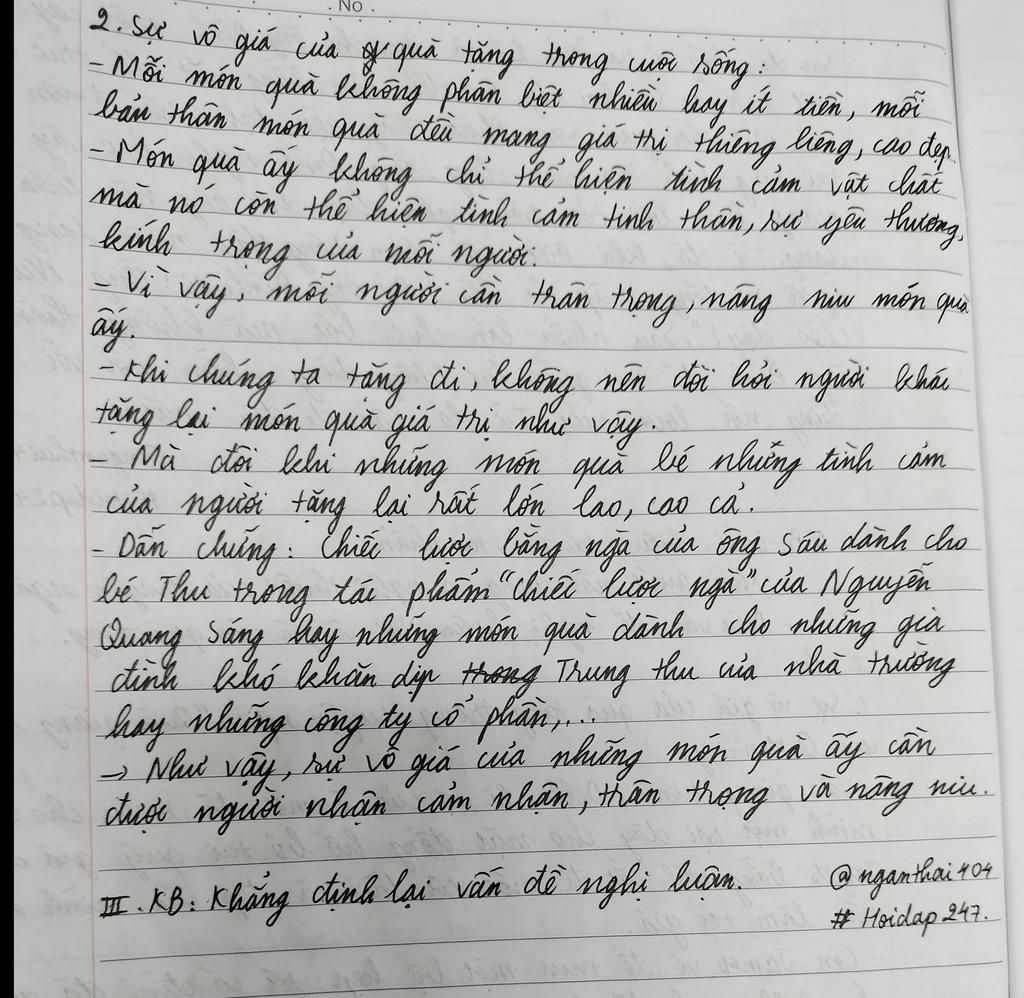 No.
2. Sự vô giá của quà tặng trong cuộc sống:
- Mỗi món quà không phân biệt nhiều hay ít tiền, mỗi
bản thân món quà đều mang giá trị thiêng liêng, cao đẹp.
- Món quà ấy không chỉ thể hiện tình cảm vật chất
mà nó còn thể hiện tình cảm tinh thần, sự yêu thương,
kính trọng của mỗi người.
- Vì vậy, mỗi người cần trân trọng, nâng niu món quà
ấy.
- Khi chúng ta tặng đi, không nên đòi hỏi người khác
tặng lại món quà giá trị như vậy.
- Mà đôi khi những món quà bé nhưng tình cảm
của người tặng lại rất lớn lao, cao cả.
- Dẫn chứng: Chiếc lược bằng ngà của ông Sáu dành cho
bé Thu trong tác phẩm "Chiếc lược ngà" của Nguyễn
Quang Sáng hay những món quà dành cho những gia
đình khó khăn dịp trong Trung thu của nhà trường
hay những công ty cổ phần,...
→ Như vậy, sự vô giá của những món quà ấy cần
được người nhận cảm nhận, trân trọng và nâng niu.
III. KB: Khẳng định lại vấn đề nghị luận.
@nganthai404
# Hoidap247.